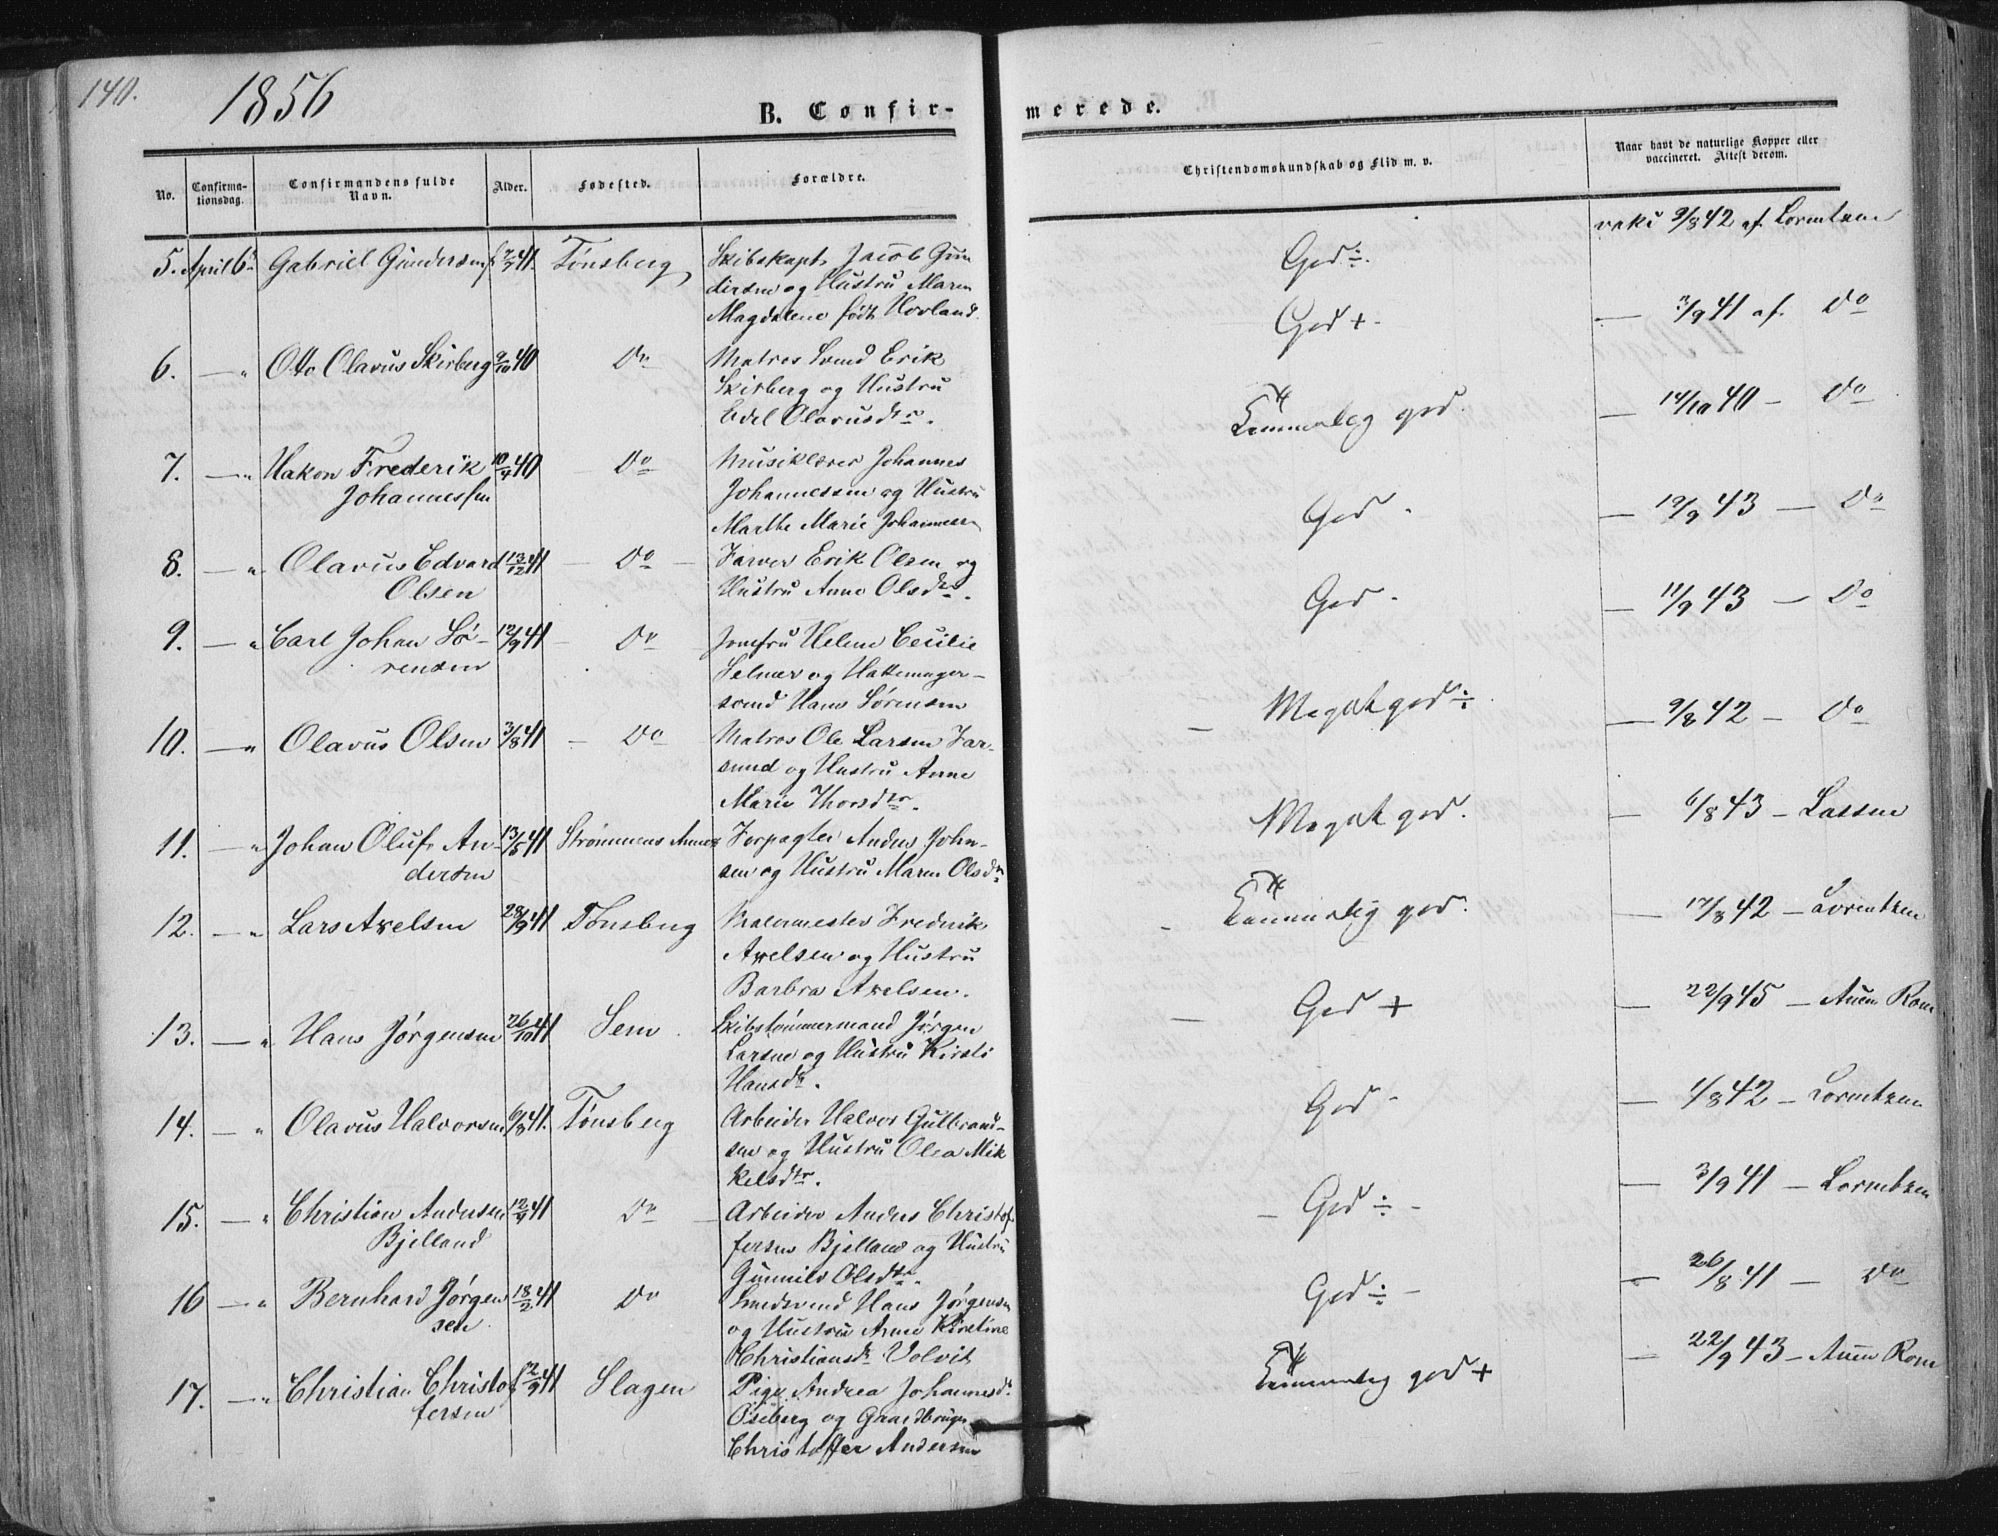 140.
1856
B. Confir-
merede.
No.
Confirma-
tionsdag.
Confirmandens fulde
Navn.
Alder.
Fødested.
Forældre.
Christendomskundskab og Flid m. v.
Naar havt de naturlige Kopper eller
vaccineret. Attest derom.
5. April 6 Gabriel Gundersen 41. Tønsberg Skibskapt. Jacob Gun
dersen og Hustru Maren
Magdalene født Hovland
God ÷. 9/8 42 af Lorentzen
6. — " Otto Olavus Skirberg 9/10 40 Do Matros Svend Erik
Skirberg og Hustru
Edel Olavusdtr.
God + — 3/9 41 af Do
7. — " Hakon Frederik 10/9 40 Do Musiklærer Johannes
Johannessen Johannessen og Hustru
Marthe Marie Johannessen
Temmelig god. — 14/10 40 — Do
8. — " Olavus Edvard 13/12 41 — Do — Farver Erik Olsen og
Olsen Hustru Anne Olsdtr.
God — 19/9 43 — Do
9. — " Carl Johan Sø- 12/9 41 — Do Jomfru Helene Cecilie
rensen Selmer og Hattemager-
svend Hans Sørensen
God — 11/9 43 — Do
10. — " Olavus Olsen 3/8 41 — Do Matros Ole Larsen Far-
sund og Hustru Anne
Marie Thorsdtr.
Meget god ÷ — 9/8 42 — Do
11. — " Johan Oluf An- 13/5 41 Strømmens Forpagter Anders John-
dersen sen og Hustru Maren Olsdtr
Meget god. — 6/8 43 — Lassen
12. — " Lars Axelsen 28/9 41 Tønsberg Malermester Frederik
Axelsen og Hustru
Barbra Axelsen.
Temmelig god. — 17/8 42 — Lorentzen
13. — " Hans Jørgensen 26/10 41 Sem Skibstømmermand Jørgen
Larsen og Hustru Kirsti
Hansdtr.
God + — 22/9 45 — Rom
14. — " Olavus Halvorsen 6/8 41. Tønsberg Arbeider Halvor Gulbrand-
sen og Hustru Olea Mik
kelsdtr.
God — 1/8 42 — Lorentzen
15. — " Christian Andersen 12/9 41 Do — Arbeider Anders Christof-
Bjelland fersen Bjelland og Hustru
Gunnild Olsdtr.
— God ÷ — — 3/9 41 — Lorentzen
16 — " Bernhard Jørgen 18/2 41 Do Smedsvend Hans Jørgensen
sen og Hustru Anne Kirstine
Christiansdtr
God ÷ — — 26/8 41 — Do
17. — " Christian Christof 41 Slagen Pige Andrea Johannesdtr
fersen Oseberg og Gaardbruger
Christoffer Andersen
Temmelig god + — 22/9 43 — Rom